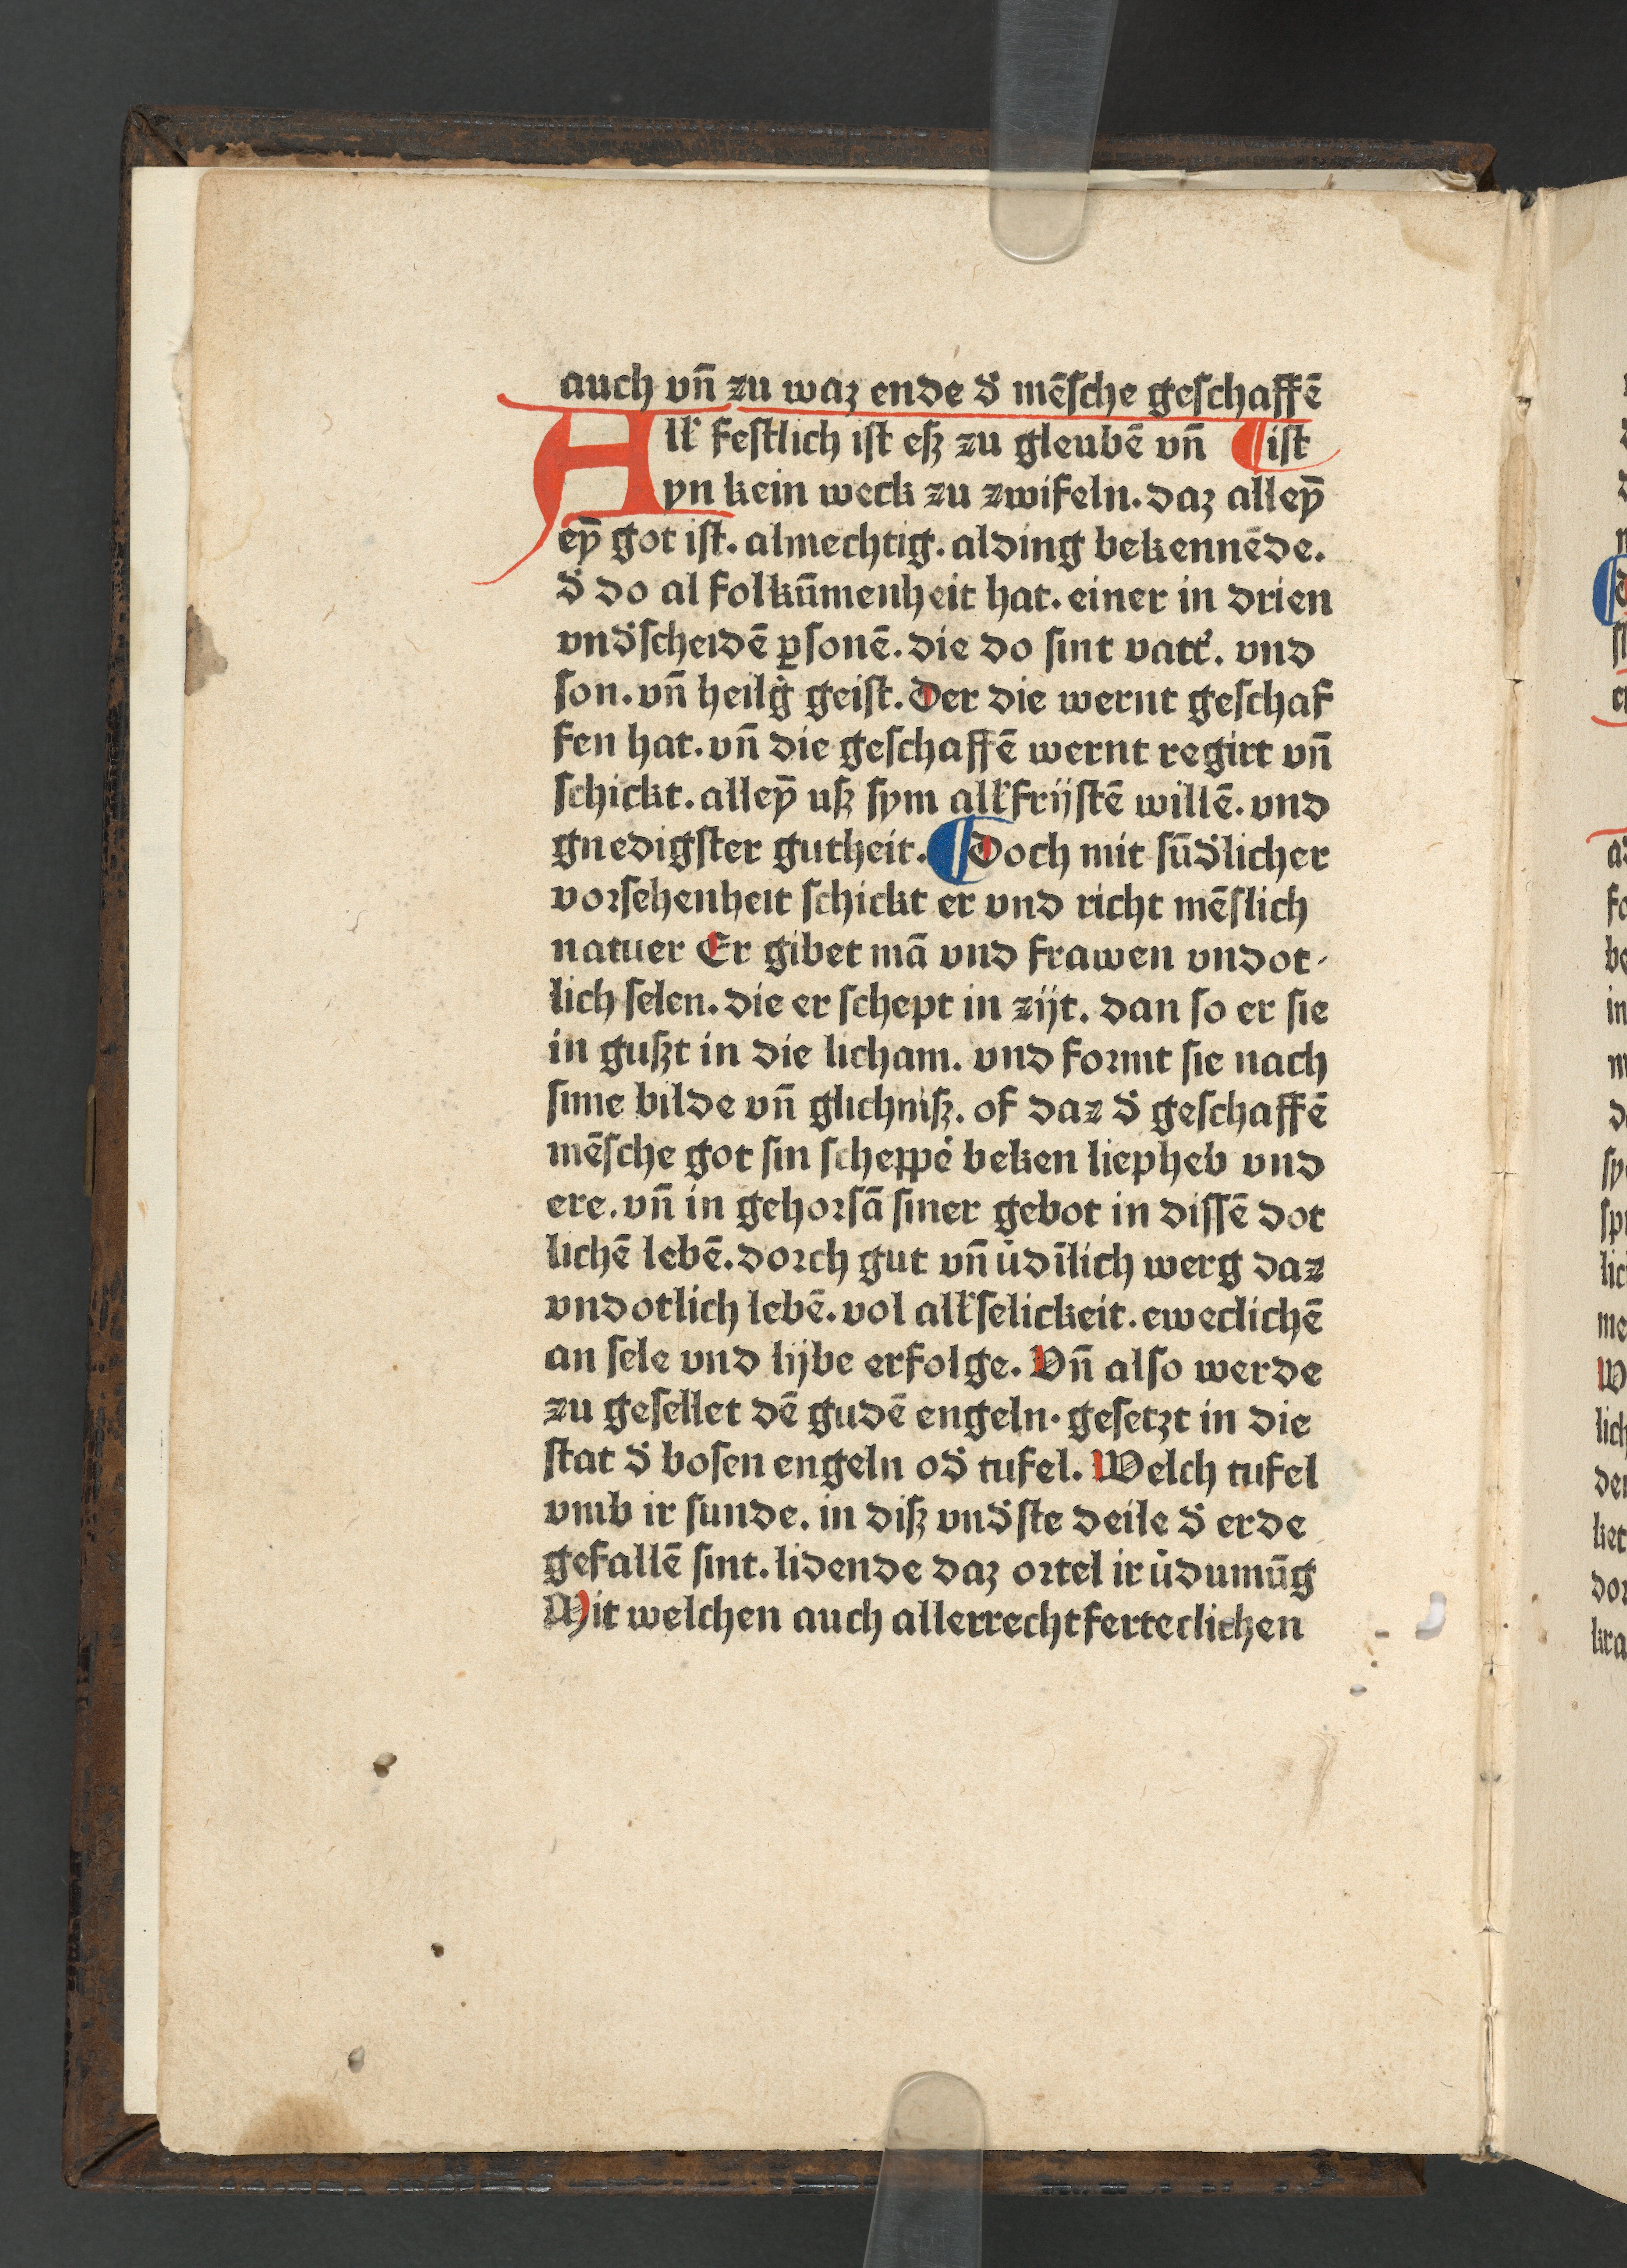 auch vn̄ zu waz ende d̕ mēſche geſchaffē
All̕ feſtlich iſt eſz zu gleubē vn̄ ¶ iſt
yn kein weck zu zwifeln. daz alleȳ
eȳ got iſt. almechtig. alding bekennēde.
d̕ do al folkūmenheit hat. einer in drien
vnd̕ſcheidē ꝑſonē. die do ſint vatt̕. vnd
ſon. vn̄ heilg̕ geiſt. Der die wernt geſchaf
fen hat. vn̄ die geſchaffē wernt regirt vn̄
ſchickt. alleȳ uſz ſym all̕frijſtē willē. vnd
gnedigſter gutheit. ¶ Doch mit ſūd̕licher
vorſehenheit ſchickt er vnd richt mēſlich
natuer Er gibet mā vnd frawen vndot-
lich ſelen. die er ſchept in zijt. dan ſo er ſie
in guſzt in die licham. vnd formt ſie nach
ſime bilde vn̄ glichniſz. of daz d̕ geſchaffē
mēſche got ſin ſcheppe̕ beken liepheb vnd
ere. vn̄ in gehorſā ſiner gebot in diſſē dot
lichē lebē. dorch gut vn̄ v̕dīlich werg daz
vndotlich lebē. vol all̕ſelickeit. eweclichē
an ſele vnd lijbe erfolge. Vn̄ alſo werde
zu geſellet dē gudē engeln. geſetzt in die
ſtat d̕ boſen engeln od̕ tufel. Welch tufel
vmb ir ſunde. in diſz vnd̕ſte deile d̕ erde
gefallē ſint. lidende daz ortel ir v̕dumūg
Mit welchen auch allerrechtferteclichen